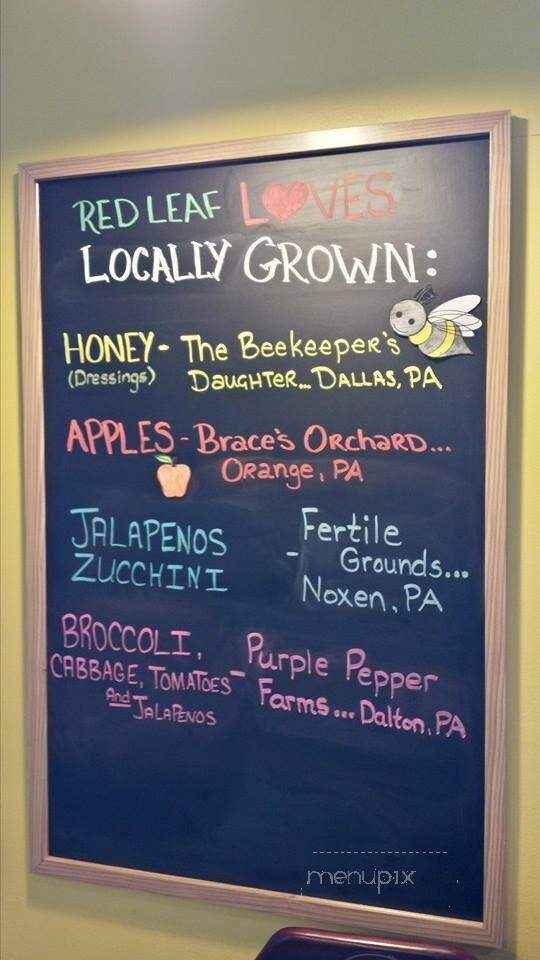 RED LEAF LOVES
LOCALLY GROWN:
HONEY - The Beekeeper's
(Dressings) DAUGHTER... DALLAS, PA
APPLES - Brace's ORCHARD...
ORange, PA
JALAPENOS
ZUCCHINI
- Fertile
Grounds...
Noxen, PA
BROCCOLI,
CABBAGE, TOMATOES
And JALAPENOS
- Purple Pepper
Farms... Dalton, PA
menupix